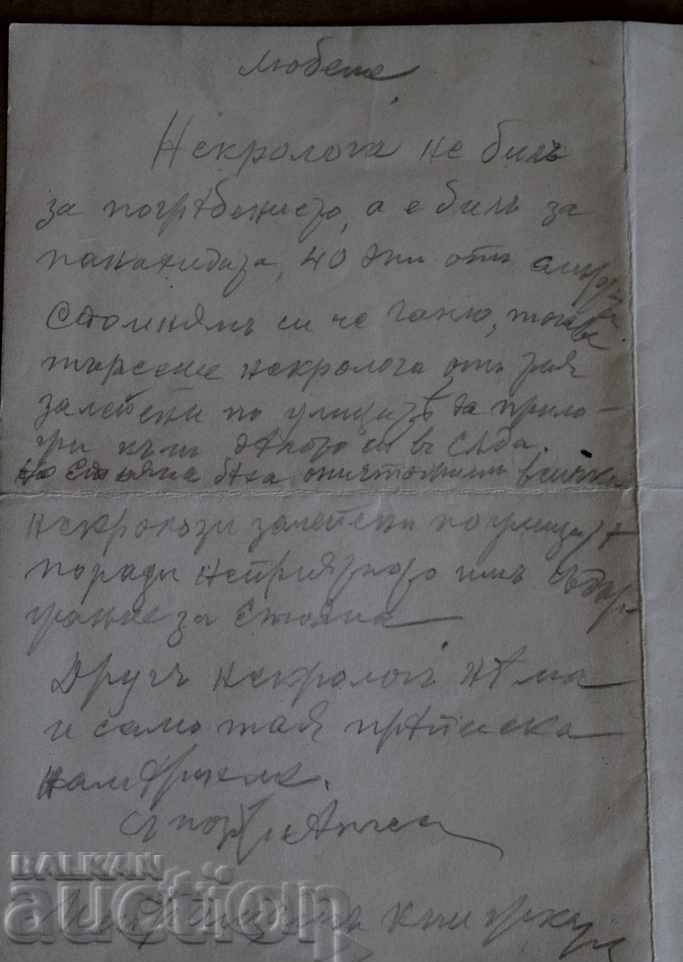 Любене
Некролога не билъ
за погрѣбението, а е билъ за
панахидата, 40 дни отъ
Спомнямъ си че Ганю, тогава
търсеше некролога отъ тия
залепени по улицитѣ да прило-
жи къмъ дѣлото си въ съда.
Но Стояна бѣха унищожили всички
некролози залепени по улицитѣ
поради неприязното имъ
за Стояна
Другъ некрологъ нѣма
и само тая прѣписка
намѣрихме.
Съ поздрави
BALKAN
auction